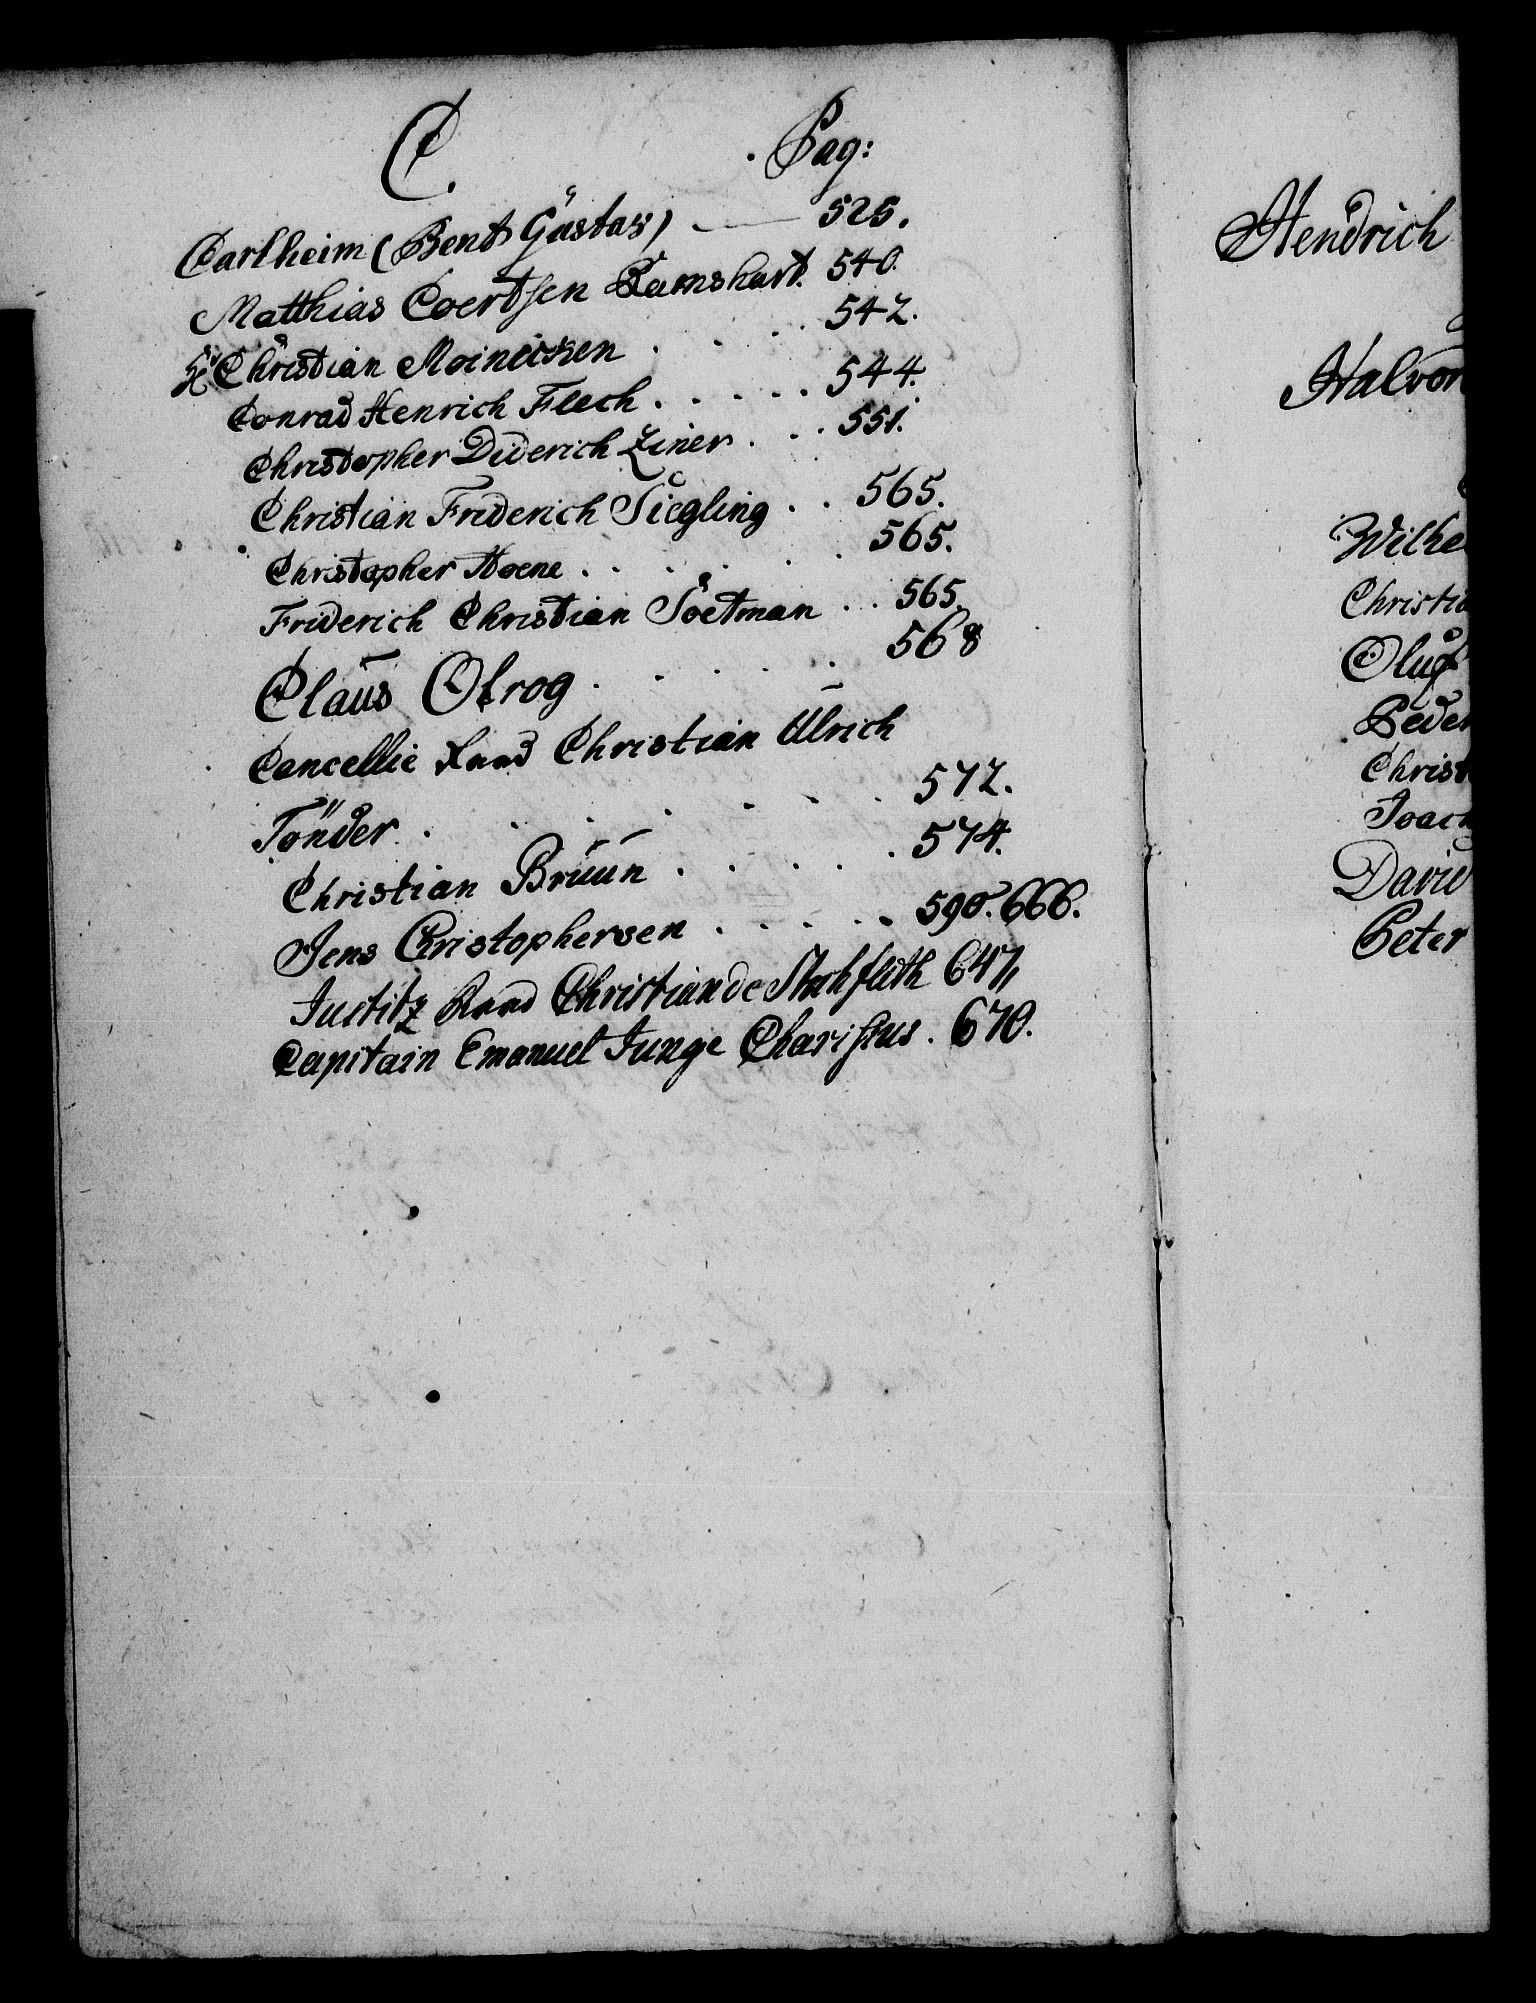 C. Pag:
Carlheim (Bent Gustav) 525.
Matthias Coertsen Ramshart. 540.
Hr Christian Meinicksen . . . . 542.
Conrad Henrich Flech . . . . . 544.
Christopher Diderich Ziner . . . 551.
Christian Friderich Siegling . . 565.
Christopher Hoene . . . . . 565.
Friderich Christian Soetman . . . 565.
Claus Olrog . . . . . 568
Cancellie Raad Christian Ulrich
Tönder . . . . . . . 572.
Christian Bruun . . . . . 574.
Jens Christophersen . . . . . 590. 666.
Justitz Raad Christian de Stuhfleth 647,
Capitain Emanuel Junge Charisius . 670.
Hendrich
Halvor
Wilhe
Christia
Oluf
Peder
Christ
Joach
David
Peter